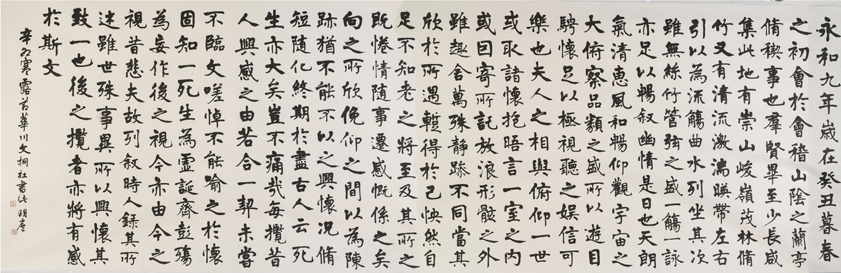 永和九年歲在癸丑暮春
之初會於會稽山陰之蘭亭
脩稧事也羣賢畢至少長咸
集此地有崇山峻嶺茂林脩
竹又有清流激湍暎帶左右
引以為流觴曲水列坐其次
雖無絲竹管弦之盛一觴一詠
亦足以暢叙幽情是日也天朗
氣清惠風和暢仰觀宇宙之
大俯察品類之盛所以遊目
騁懷足以極視聽之娛信可
樂也夫人之相與俯仰一世
或取諸懷抱晤言一室之內
或因寄所託放浪形骸之外
雖趣舍萬殊靜躁不同當其
欣於所遇蹔得於己怏然自
足不知老之將至及其所之
既惓情隨事遷感慨係之矣
向之所欣俛仰之間以為陳
跡猶不能不以之興懷況脩
短隨化終期於盡古人云死
生亦大矣豈不痛哉每攬昔
人興感之由若合一契未嘗
不臨文嗟悼不能喻之於懷
固知一死生為虛誕齊彭殤
為妄作後之視今亦由今之
視昔悲夫故列叙時人錄其所
述雖世殊事異所以興懷其
致一也後之攬者亦將有感
於斯文
辛卯寒露